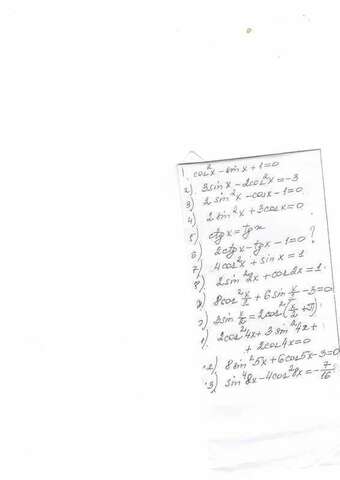 1. cos²x - sinx + 1 = 0
2) 3sinx - 2cos²x = -3
3) 2sin²x - cosx - 1 = 0
4) 2sin²x + 3cosx = 0
5) ctgx = tgx
6) 2ctgx - tgx - 1 = 0 ?
7) 4cos²x + sinx = 1
8) 2sin²2x + cos2x = 1
) 8cos² x/2 + 6sin x/2 - 3 = 0
) 3sin x/2 = 2cos²( x/2 + )
1) 2cos²4x + 3sin²4x +
+ 2cos4x = 0
2) 8sin²5x + 6cos5x - 3 = 0
3) sin⁴8x - 4cos²8x = - 7/16